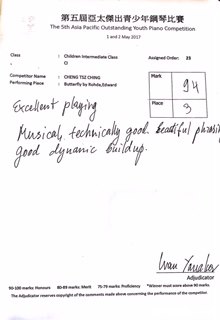 第五屆亞太傑出青少年鋼琴比賽
The 5th Asia Pacific Outstanding Youth Piano Competition
1 and 2 May 2017
Class : Children Intermediate Class Assigned Order: 23
: O
Competitor Name : CHENG TSZ CHING
Performing Piece : Butterfly by Rohde,Edward
Mark
94
Place
9
Excellent playing
Musical, technically good. Beautiful phrasing
good dynamic buildup.
Ivan Yanakov
Adjudicator
90-100 marks: Honours 80-89 marks: Merit 75-79 marks: Proficiency *Winner must score above 90 marks.
The Adjudicator reserves copyright of the comments made above concerning the performance of the competitor.